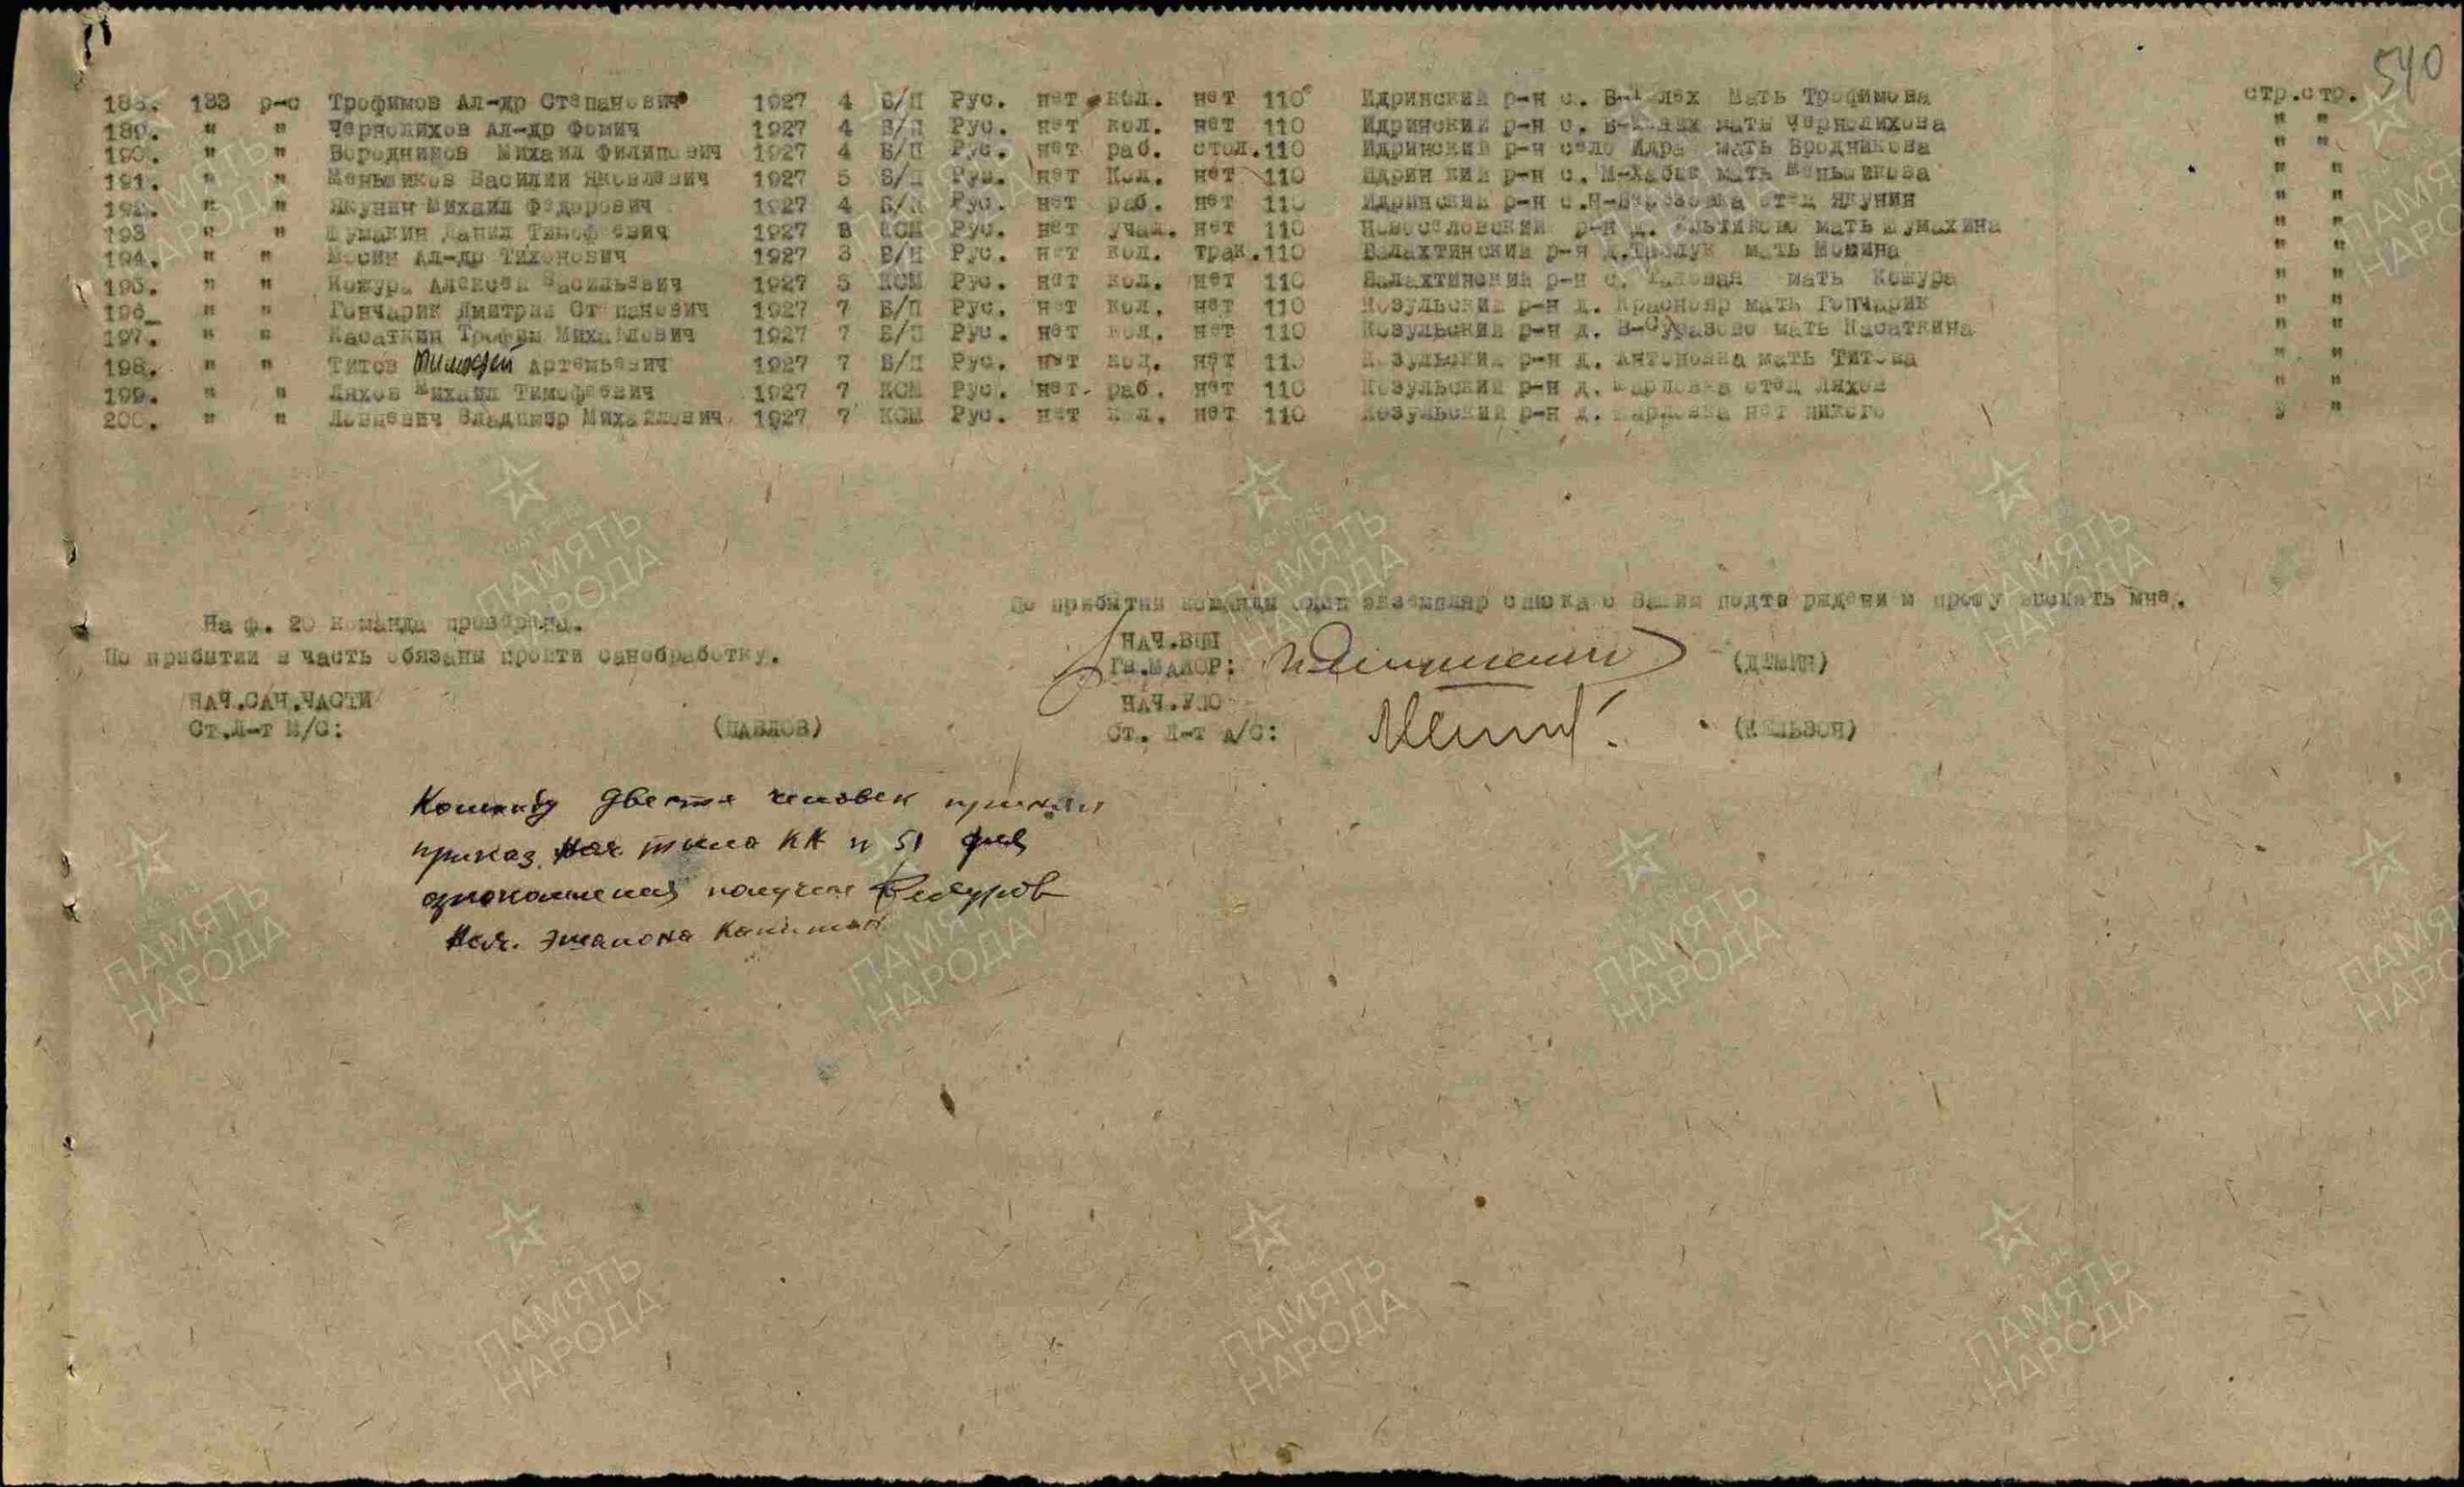 540
188. 133 р-с Трофимов Ал-др Степанович 1927 4 Б/П Рус. нет кол. нет 110 Идринский р-н с. мать Трофимова стр.стр.
189. " " Чернолихов Ал-др Фомич 1927 4 Б/П Рус. нет кол. нет 110 Идринский р-н с. мать Чернолихова " "
190. " " Бородников Михаил Филипович 1927 4 Б/П Рус. нет раб. стол.110 Идринский р-н село Идра мать Бродникова " "
191. " " Меньшиков Василий Яковлевич 1927 5 Б/П Рус. нет Кол. нет 110 Идрин кий р-н с. М-Хабык мать Меньшикова " "
192. " " Якунин Михаил Федорович 1927 4 Б/П Рус. нет раб. нет 110 Идринский р-н с.Н-Березовка отец Якунин " "
193 " " Шумахин Данил Тимофеевич 1927 8 КСМ Рус. нет учащ. нет 110 Новоселовский р-н д. мать Шумахина " "
194. " " Мосин Ал-др Тихонович 1927 3 Б/П Рус. нет кол. трак.110 Балахтинский р-н д. мать Мосина " "
195. " " Кожура Алексей Васильевич 1927 5 КСМ Рус. нет кол. нет 110 Балахтинский р-н с. мать Кожура " "
196_ " " Гончарик Дмитрий Степанович 1927 7 Б/П Рус. нет кол. нет 110 Козульский р-н д. Краснояр мать Гончарик " "
197. " " Касаткин Трофим Михайлович 1927 7 Б/П Рус. нет кол. нет 110 Козульский р-н д. мать Касаткина " "
198. " " Титов Тимофей Артемьевич 1927 7 Б/П Рус. нет кол. нет 110 Козульский р-н д. Антоновка мать Титова " "
199. " " Ляхов Михаил Тимофеевич 1927 7 КСМ Рус. нет раб. нет 110 Козульский р-н д. отец Ляхов " "
200. " " Владимир Михайлович 1927 7 КСМ Рус. нет кол. нет 110 Козульский р-н д. нет никого " "
По прибытии команды один экземпляр списка с Вашим подтверждением прошу выслать мне.
На ф. 20 команда проверена.
По прибытии в часть обязаны пройти санобработку.
НАЧ.ВПП
Гв.МАЙОР: (ДЕМИН)
НАЧ.САН.ЧАСТИ
Ст.Л-т М/С: (ПАВЛОВ)
НАЧ.УЛО
Ст. Л-т А/С: (МЕЛЬЗОН)
Команду двести человек принял
приказ Нач тыла КА N 51 для
ознакомления получил
Нач. эшалона Капитан
ПАМЯТЬ НАРОДА